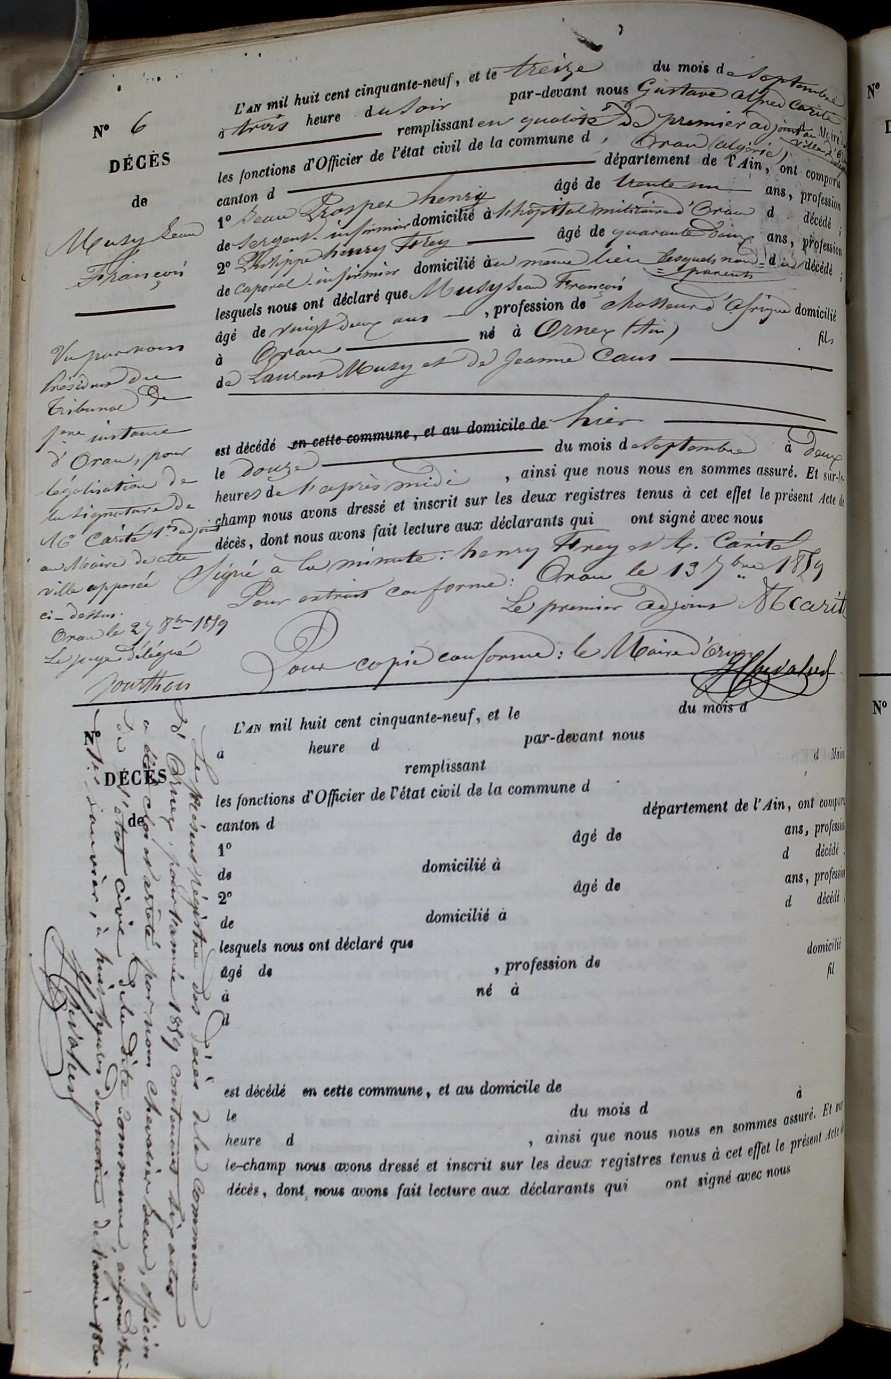 N° 6
DÉCÈS
de
Musy Jean
François
L'AN mil huit cent cinquante-neuf, et le treize du mois de Septembre
à trois heure du Soir par-devant nous Gustave alfred Carité
remplissant en qualité de premier adjoint au Maire
les fonctions d'Officier de l'état civil de la commune d Oran (algérie)
canton d département de l'Ain, ont comparu
1° Jean Prosper henry âgé de trente un ans, profession
de Sergent-infirmier domicilié à l'hôpital militaire d'Oran d décédé ;
2° Philippe henry Frey âgé de quarante deux ans, profession
de Caporal infirmier domicilié à au même lieu lesquels non parents d u décédé ;
lesquels nous ont déclaré que Musy Jean François
âgé de vingt deux ans , profession de chasseur d'afrique domicilié
à Oran né à Ornex (Ain) fils
de Laurent Musy et de Jeanne Caus
est décédé en cette commune, et au domicile de hier
le Douze du mois de Septembre à deux
heures de l'après midi , ainsi que nous nous en sommes assuré. Et sur-le-
champ nous avons dressé et inscrit sur les deux registres tenus à cet effet le présent Acte de
décès, dont nous avons fait lecture aux déclarants qui ont signé avec nous
Signé à la minute : henry Frey et A. Carité
Pour extrait conforme : Oran le 13 7bre 1859
Le premier adjoint A Carité
Pour copie conforme : le Maire d'Ornex
JChevalier
Vu par nous
Président du
Tribunal de
1ère instance
d'Oran, pour
légalisation de
la signature de
Mr Carité 1er adjoint
au Maire de cette
ville apposée
ci-dessus.
Oran le 27 8bre 1859
Le juge délégué
N°
DÉCÈS
de
L'AN mil huit cent cinquante-neuf, et le du mois d
à heure d par-devant nous
remplissant d Maire
les fonctions d'Officier de l'état civil de la commune d
canton d département de l'Ain, ont comparu
1° âgé de ans, profession
de domicilié à d décédé ;
2° âgé de ans, profession
de domicilié à d décédé ;
lesquels nous ont déclaré que
âgé de , profession de domicilié
à né à fil
d
est décédé en cette commune, et au domicile de
le du mois d à
heure d , ainsi que nous nous en sommes assuré. Et sur-
le-champ nous avons dressé et inscrit sur les deux registres tenus à cet effet le présent Acte de
décès, dont nous avons fait lecture aux déclarants qui ont signé avec nous
Le présent régistre des décès de la commune
d'Ornex, pour l'année 1859 contenant six actes
a été clos et arrêté par nous Chevalier Jean, officier
de l'état civil de la dite commune, aujourd'hui
1er janvier, à huit heures du matin de l'année 1860.
JChevalier
N°
N°